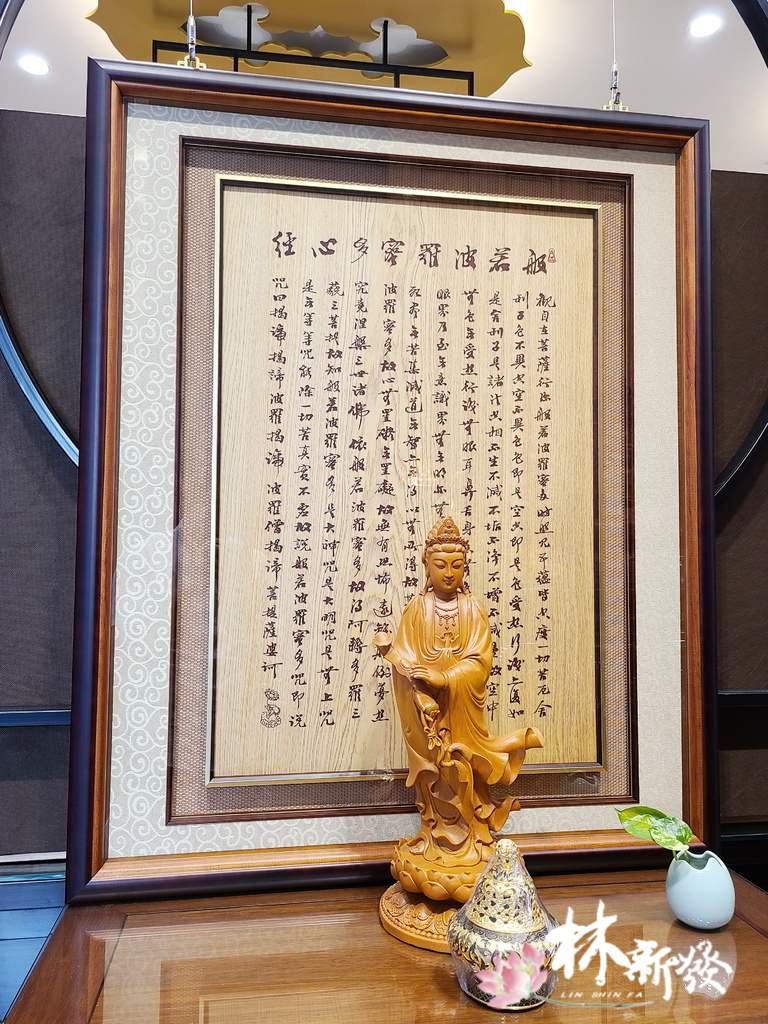 般若波羅蜜多心經
觀自在菩薩行深般若波羅蜜多時照見五蘊皆空度一切苦厄舍
利子色不異空空不異色色即是空空即是色受想行識亦復如
是舍利子是諸法空相不生不滅不垢不淨不增不減是故空中
無色無受想行識無眼耳鼻舌身
眼界乃至無意識界無無明亦無
死盡無苦集滅道無智亦無得以無所得故
波羅蜜多故心無罣礙無罣礙故無有恐怖遠離倒夢想
究竟涅槃三世諸佛依般若波羅蜜多故得阿耨多羅三
藐三菩提故知般若波羅蜜多是大神咒是大明咒是無上咒
是無等等咒能除一切苦真實不虛故說般若波羅蜜多咒即說
咒曰揭諦揭諦波羅揭諦波羅僧揭諦菩提薩婆訶
林新發
LIN SHIN FA